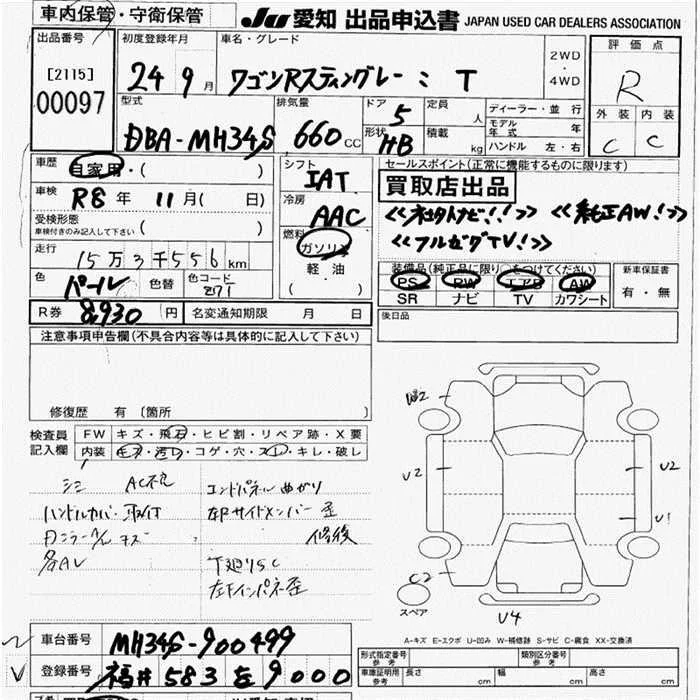 車内保管・守衛保管
JU 愛知 出品申込書 JAPAN USED CAR DEALERS ASSOCIATION
出品番号
[2115]
00097
初度登録年月
24 9月
車名・グレード
ワゴンRスティングレー : T
2WD
・
4WD
評価点
R
外装 内装
C C
型式
DBA-MH34S
排気量
660 CC
ドア 5
形状 HB
定員 人
積載 kg
ディーラー・並行
モデル年式 年
ハンドル 左・右
車歴
自家用・( )
車検
R8年 11月( 日)
受検形態
車検付きのみ記入して下さい ( )
走行
15万3千556km
色
パール
色替
色コード
Z7T
シフト
IAT
冷房
AAC
燃料
ガソリン
軽油
( )
セールスポイント(正常に機能するものに限ります)
買取店出品
<<社外ナビ!!>> <<純正AW!>>
<<フルセグTV!>>
装備品(純正品に限り○をつけてください)
PS PW エアB AW
SR ナビ TV カワシート
新車保証書
有・無
R券 8,930円
名変通知期限 月 日
後日品
注意事項申告欄(不具合内容等は具体的に記入して下さい)
修復歴 有 〔箇所 〕
検査員
記入欄
FW キズ・飛石・ヒビ割・リペア跡・X要
内装 キズ・汚れ・コゲ・穴・スレ・キレ・破レ
シミ AC不良
ハンドルカバー取付
各AV
エンドパネル曲がり
左Rサイドメンバー歪
修後
下廻りSC
左Fインパネ歪
W2
U2
U2
U1
C2
U4
スペア
A-キズ E-エクボ U-凹み W-補修跡 S-サビ C-腐食 XX-交換済
車台番号 MH34S-900499
登録番号 福井 583 を 9000
形式指定番号
参考
類別区分番号
参考
車庫証明用
参考
長さ cm 幅 cm 高さ cm